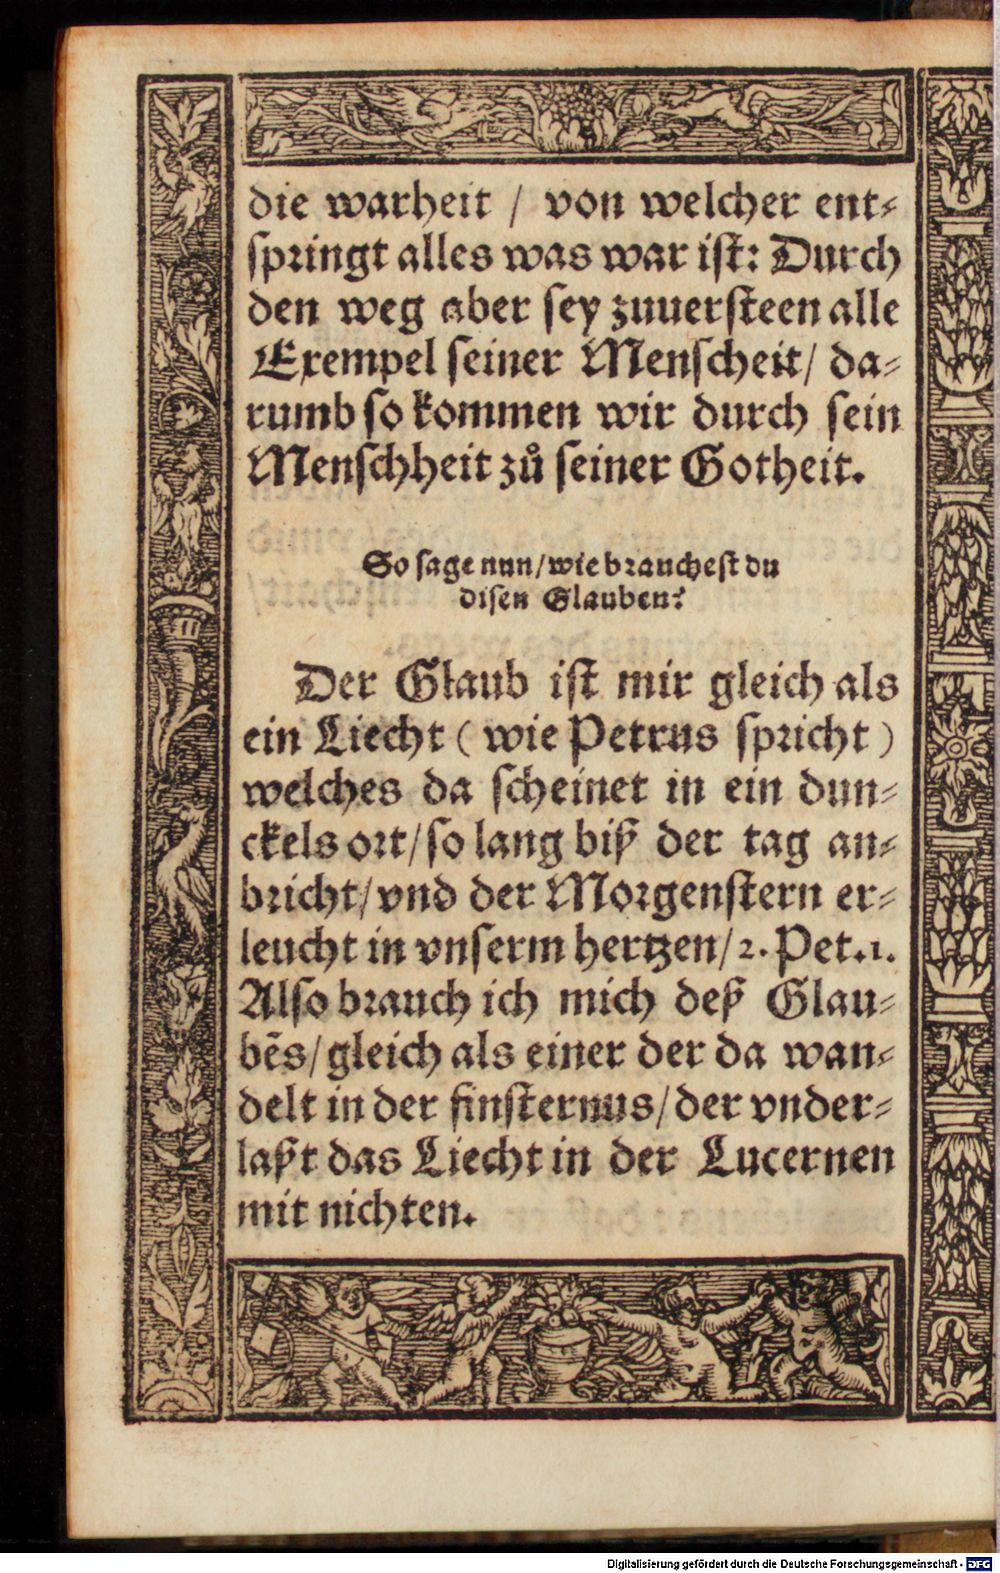 die warheit / von welcher ent⸗
springt alles was war ist: Durch
den weg aber sey zuuersteen alle
Exempel seiner Menscheit/ da⸗
rumb so kommen wir durch sein
Menschheit zů seiner Gotheit.
So sage nun/wie brauchest du
disen Glauben?
Der Glaub ist mir gleich als
ein Liecht ( wie Petrus spricht )
welches da scheinet in ein dun⸗
ckels ort/so lang biß der tag an⸗
bricht/vnd der Morgenstern er⸗
leucht in vnserm hertzen/2. Pet.1.
Also brauch ich mich deß Glau⸗
bēs/gleich als einer der da wan⸗
delt in der finsternus/der vnder⸗
laßt das Liecht in der Lucernen
mit nichten.
Digitalisierung gefördert durch die Deutsche Forschungsgemeinschaft - DFG